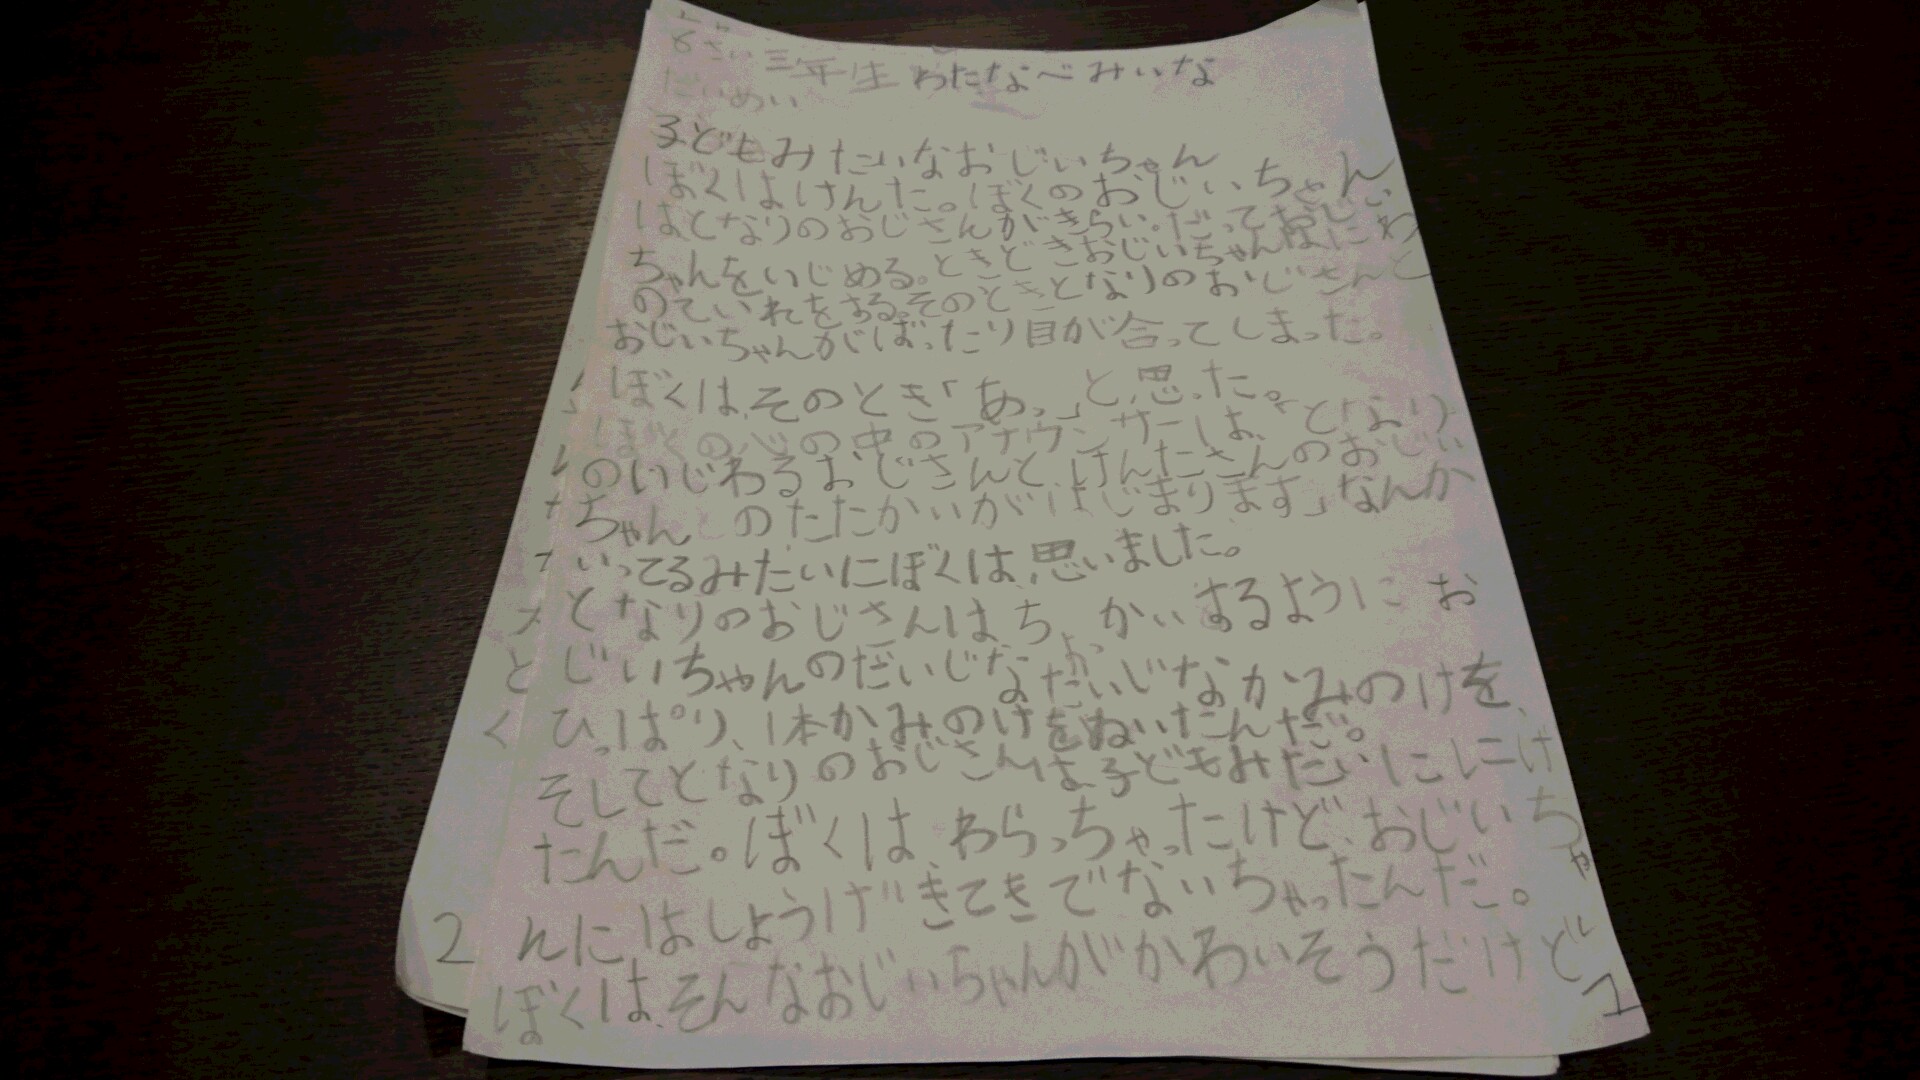 三年生 わたなべみいな
だいめい
子どもみたいなおじいちゃん
ぼくはけんた。ぼくのおじいちゃん
はとなりのおじさんがきらい。だっておじい
ちゃんをいじめる。ときどきおじいちゃんはにわ
のていれをする。そのときとなりのおじさんと
おじいちゃんがばったり目が合ってしまった。
ぼくは、そのとき「あっ」と思った。
ぼくの心の中のアナウンサーは、「となり
のいじわるおじさんと、けんたさんのおじい
ちゃん のたたかいがはじまります」なんか
いってるみたいにぼくは、思いました。
となりのおじさんはちょっかいするように お
じいちゃんのだいじなだいじなかみのけを、
ひっぱり、1本かみのけをぬいたんだ。
そしてとなりのおじさんは子どもみたいににげ
たんだ。ぼくは、わらっちゃったけど、おじいちゃ
んにはしょうげきてきでないちゃったんだ。
ぼくは、そんなおじいちゃんがかわいそうだけど
1
2